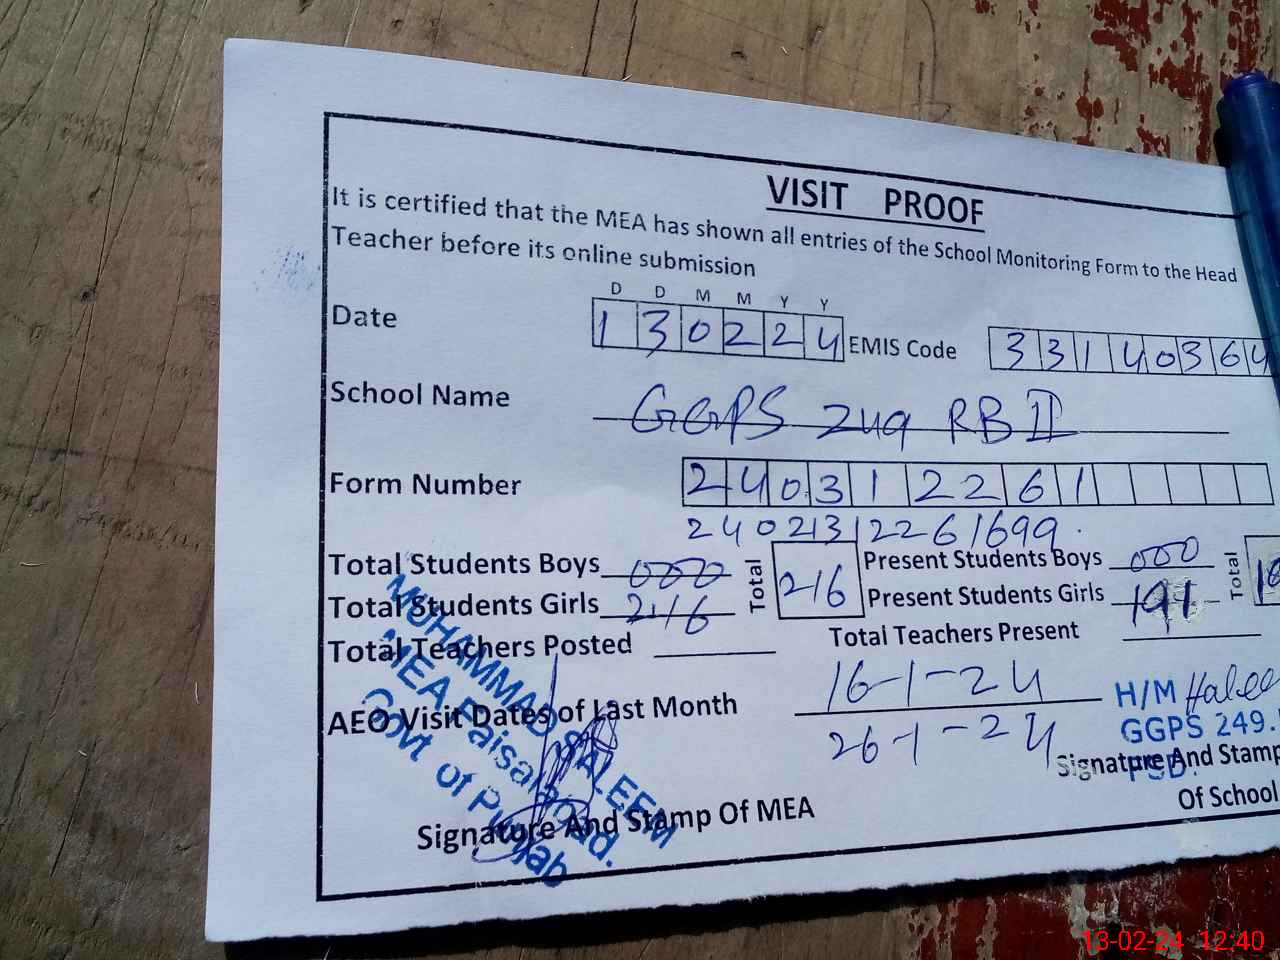 VISIT PROOF
It is certified that the MEA has shown all entries of the School Monitoring Form to the Head
Teacher before its online submission
D D M M Y Y
Date 1 3 0 2 2 4 EMIS Code 3 3 1 4 0 3 6 4
School Name GGPS 249 RB II
Form Number 2 4 0 3 1 2 2 6 1
2402131226 1699
Total Students Boys 000 Total 216 Present Students Boys 000 Total
Total Students Girls 216 Present Students Girls 191
Total Teachers Posted Total Teachers Present
AEO Visit Dates of Last Month 16-1-24
26-1-24
H/M
GGPS 249.
FSD.
MUHAMMAD SALEEM
MEA Faisalabad.
Govt of Punjab
Signature And Stamp Of MEA
Signature And Stamp
Of School
13-02-24 12:40